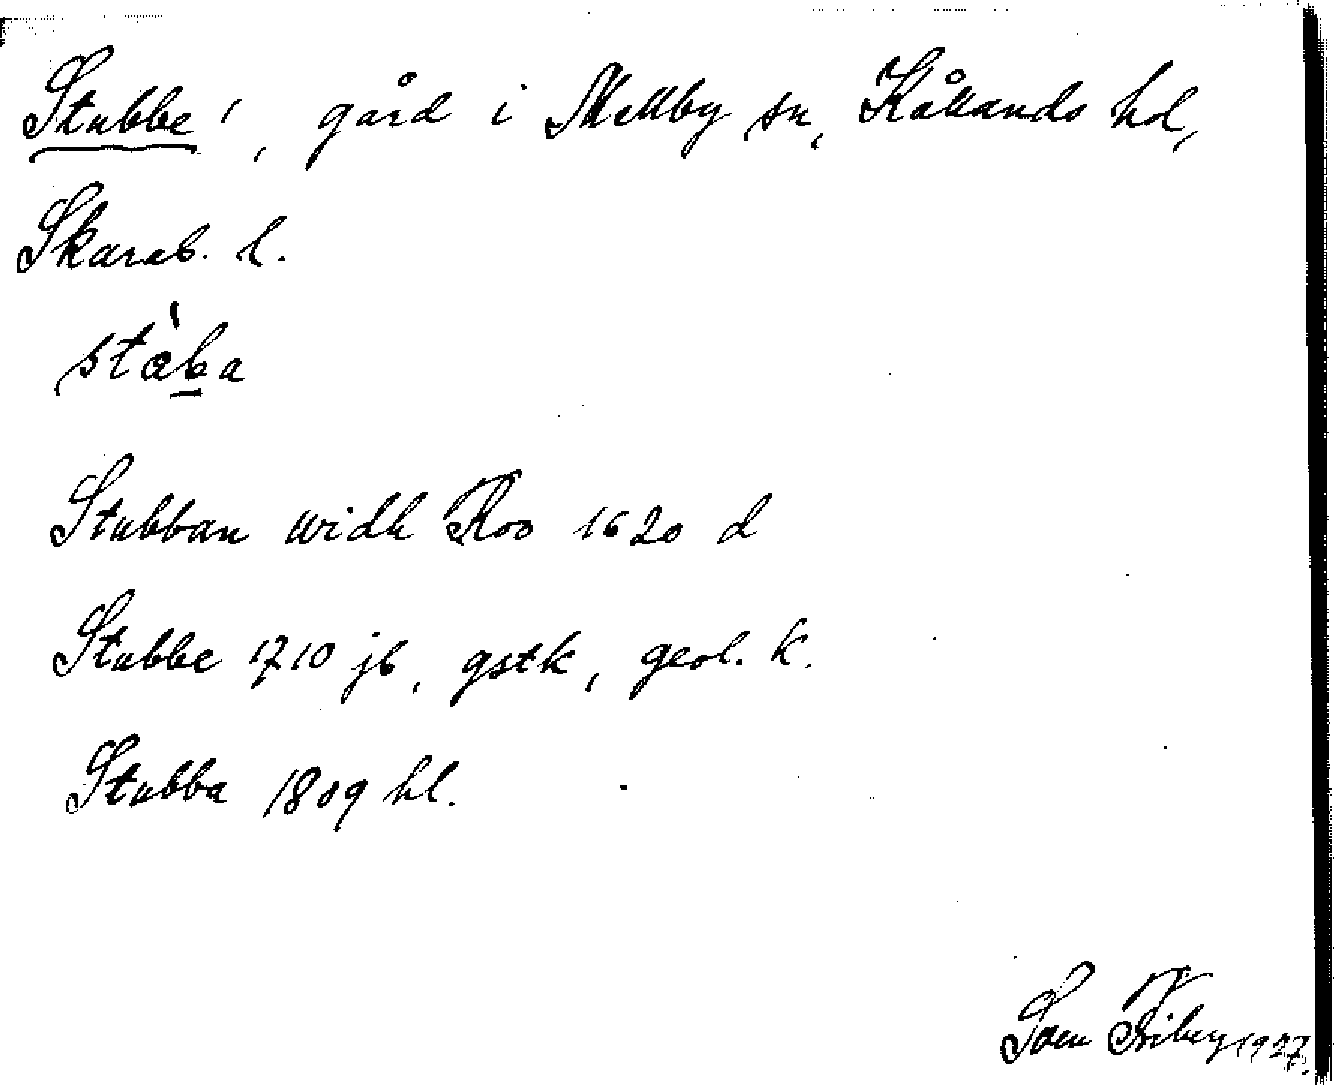 Stubbe ', gård i Mellby sn, Kållands hd,
Skarab. l.
stàba
Stubban widh Roo 1620 d
Stubbe 1710 jb, gstk, geol. k.
Stubba 1809 hl.
Sven 1927.